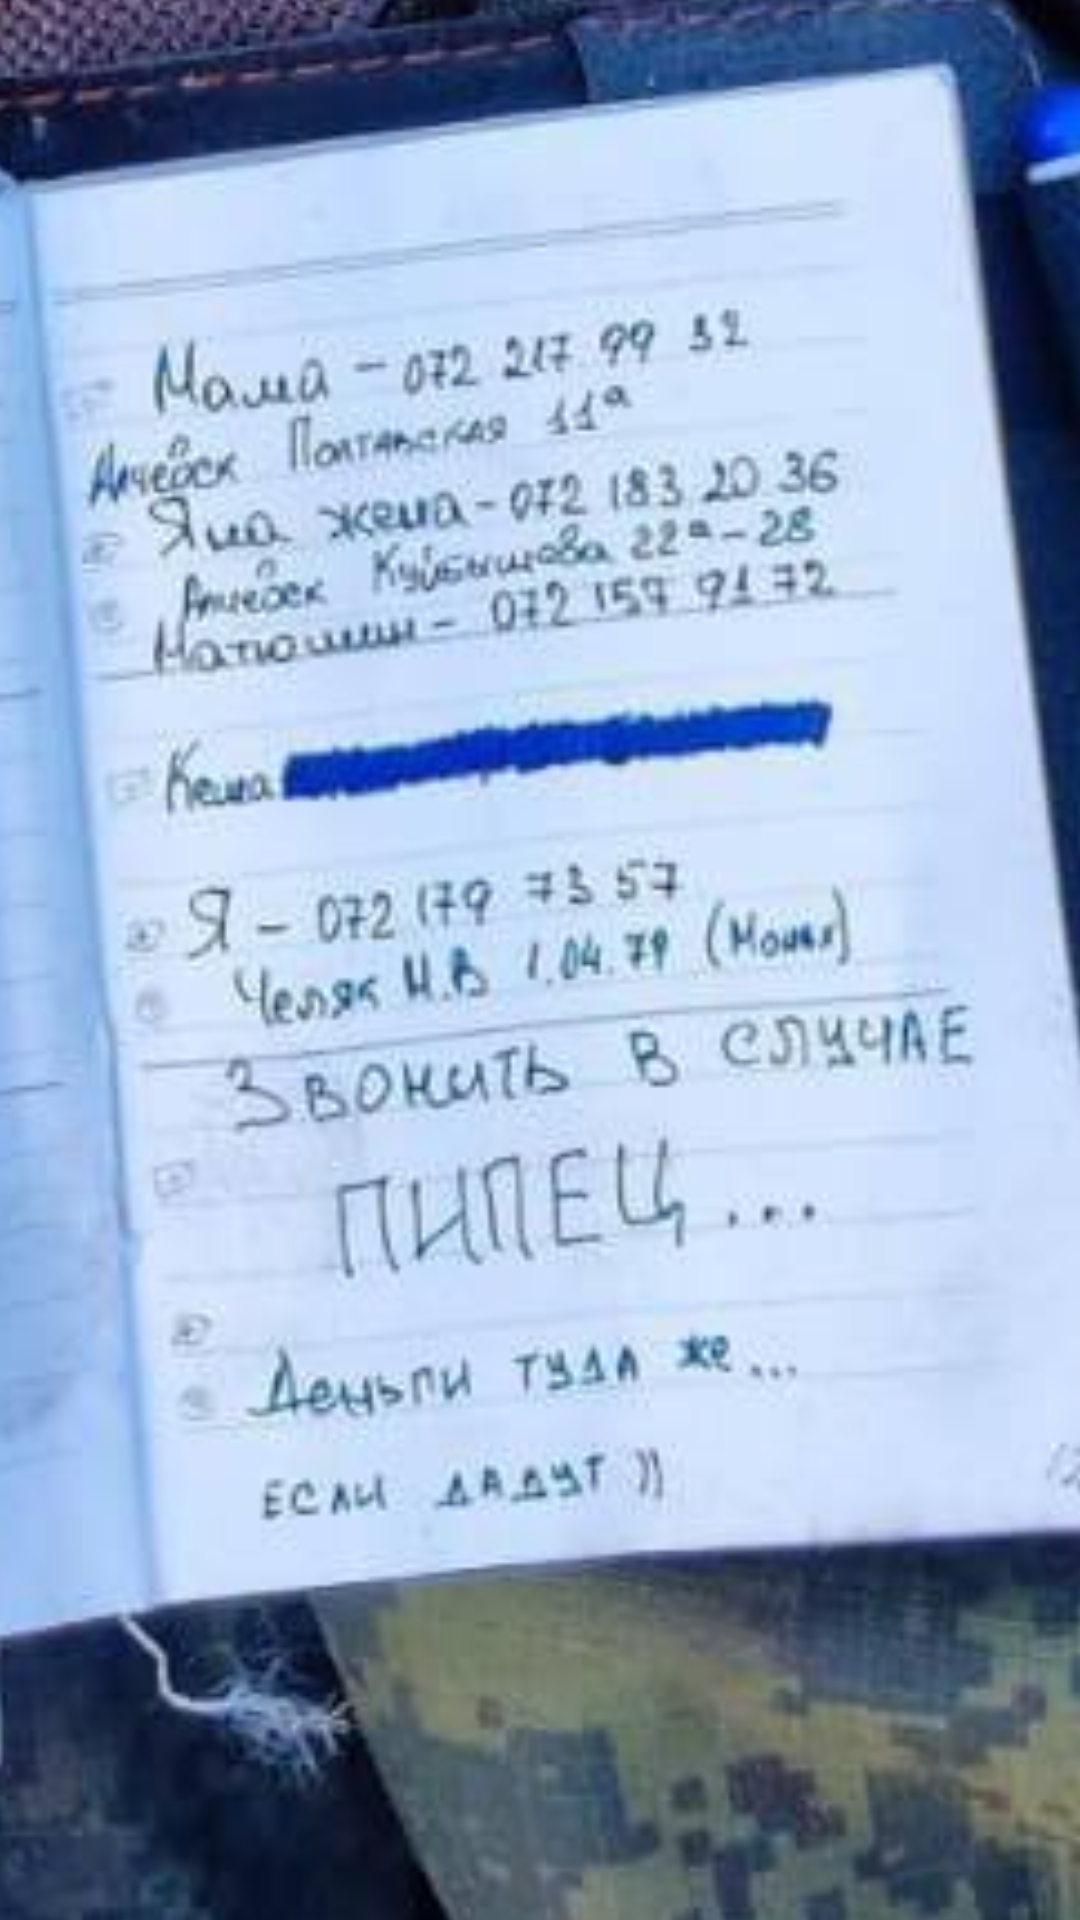 Мама - 072 217 99 32
Алчевск Полтавская 11а
Яна жена - 072 183 20 36
Алчевск Куйбышева 22а-28
Матюшин - 072 157 91 72
Кеша
Я - 072 179 73 57
Челяк М.В 1.04.79
ЗВОНИТЬ В СЛУЧАЕ
ПИПЕЦ...
Деньги туда же...
ЕСЛИ ДАДУТ ))